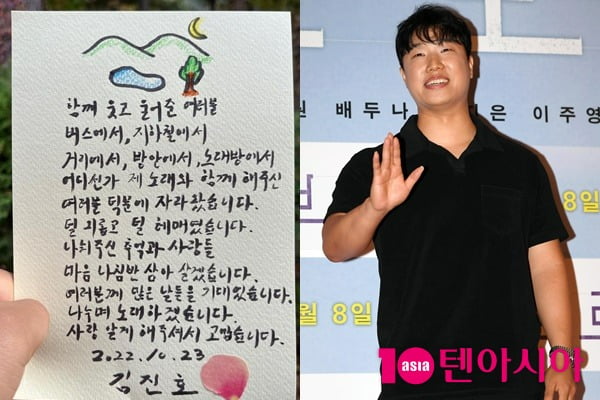 함께 웃고 울어준 여러분
버스에서, 지하철에서
거리에서, 방안에서, 노래방에서
어디선가 제 노래와 함께 해주신
여러분 덕분에 자라왔습니다.
덜 외롭고 덜 헤맸습니다.
나눠주신 추억과 사랑들
마음 나침반 삼아 살겠습니다.
여러분께 많은 날들을 기대왔습니다.
나누며 노래하겠습니다.
사랑 알게 해주셔서 고맙습니다.
2022.10.23
김진호
원 배두나 은 이주영
8일
월 8일
10 asia 텐아시아